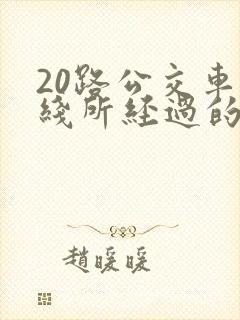 20路公交車
綫所經過的
趙暖暖